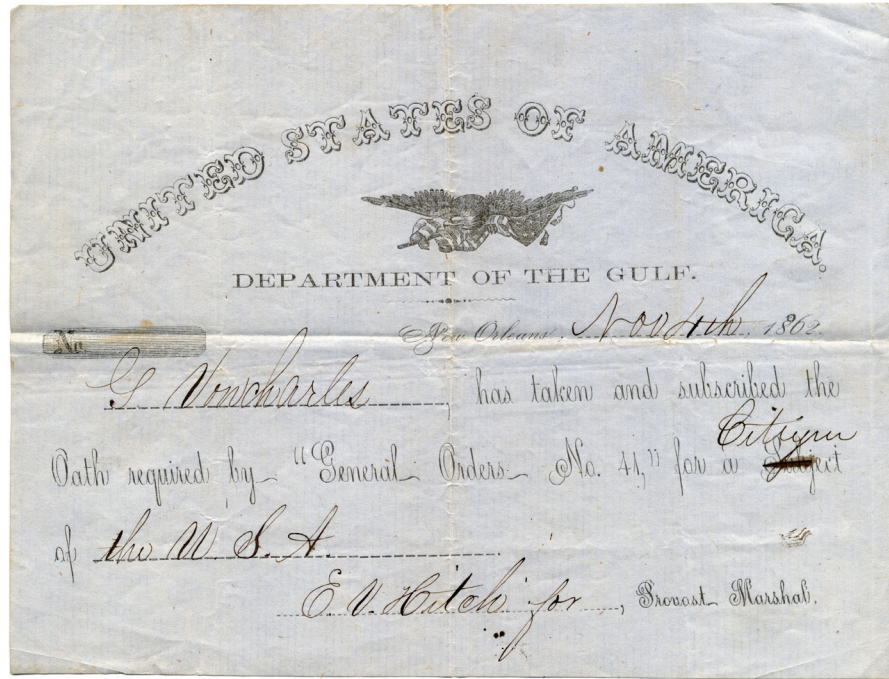 UNITED STATES OF AMERICA.
DEPARTMENT OF THE GULF.
New Orleans, Nov 4th, 1862.
No
G Voncharles has taken and subscribed the
Citizen
Oath required by "General Orders No. 41," for a Subject
of the U. S. A.
E. V. Hitch for, Provost Marshal.